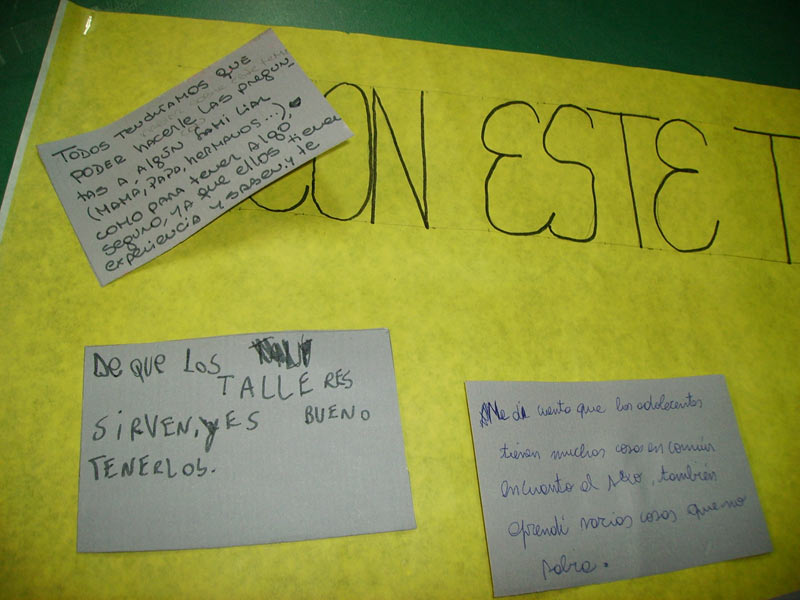 TODOS TENDRÍAMOS QUE
PODER HACERLE LAS PREGUN_
TAS A ALGÚN FAMI LIAR
(MAMÁ, PAPÁ, HERMANOS...),
COMO PARA TENER ALGO
SEGURO, YA QUE ELLOS tienen
experiencia y SABEN. Y te
CON ESTE T
De QUE LOS
TALLERES
SIRVEN, y ES BUENO
TENERLOS.
Me di cuenta que los adolecentes
tienen muchas cosas en común
en cuanto al sexo, también
aprendí varias cosas que no
sabia.